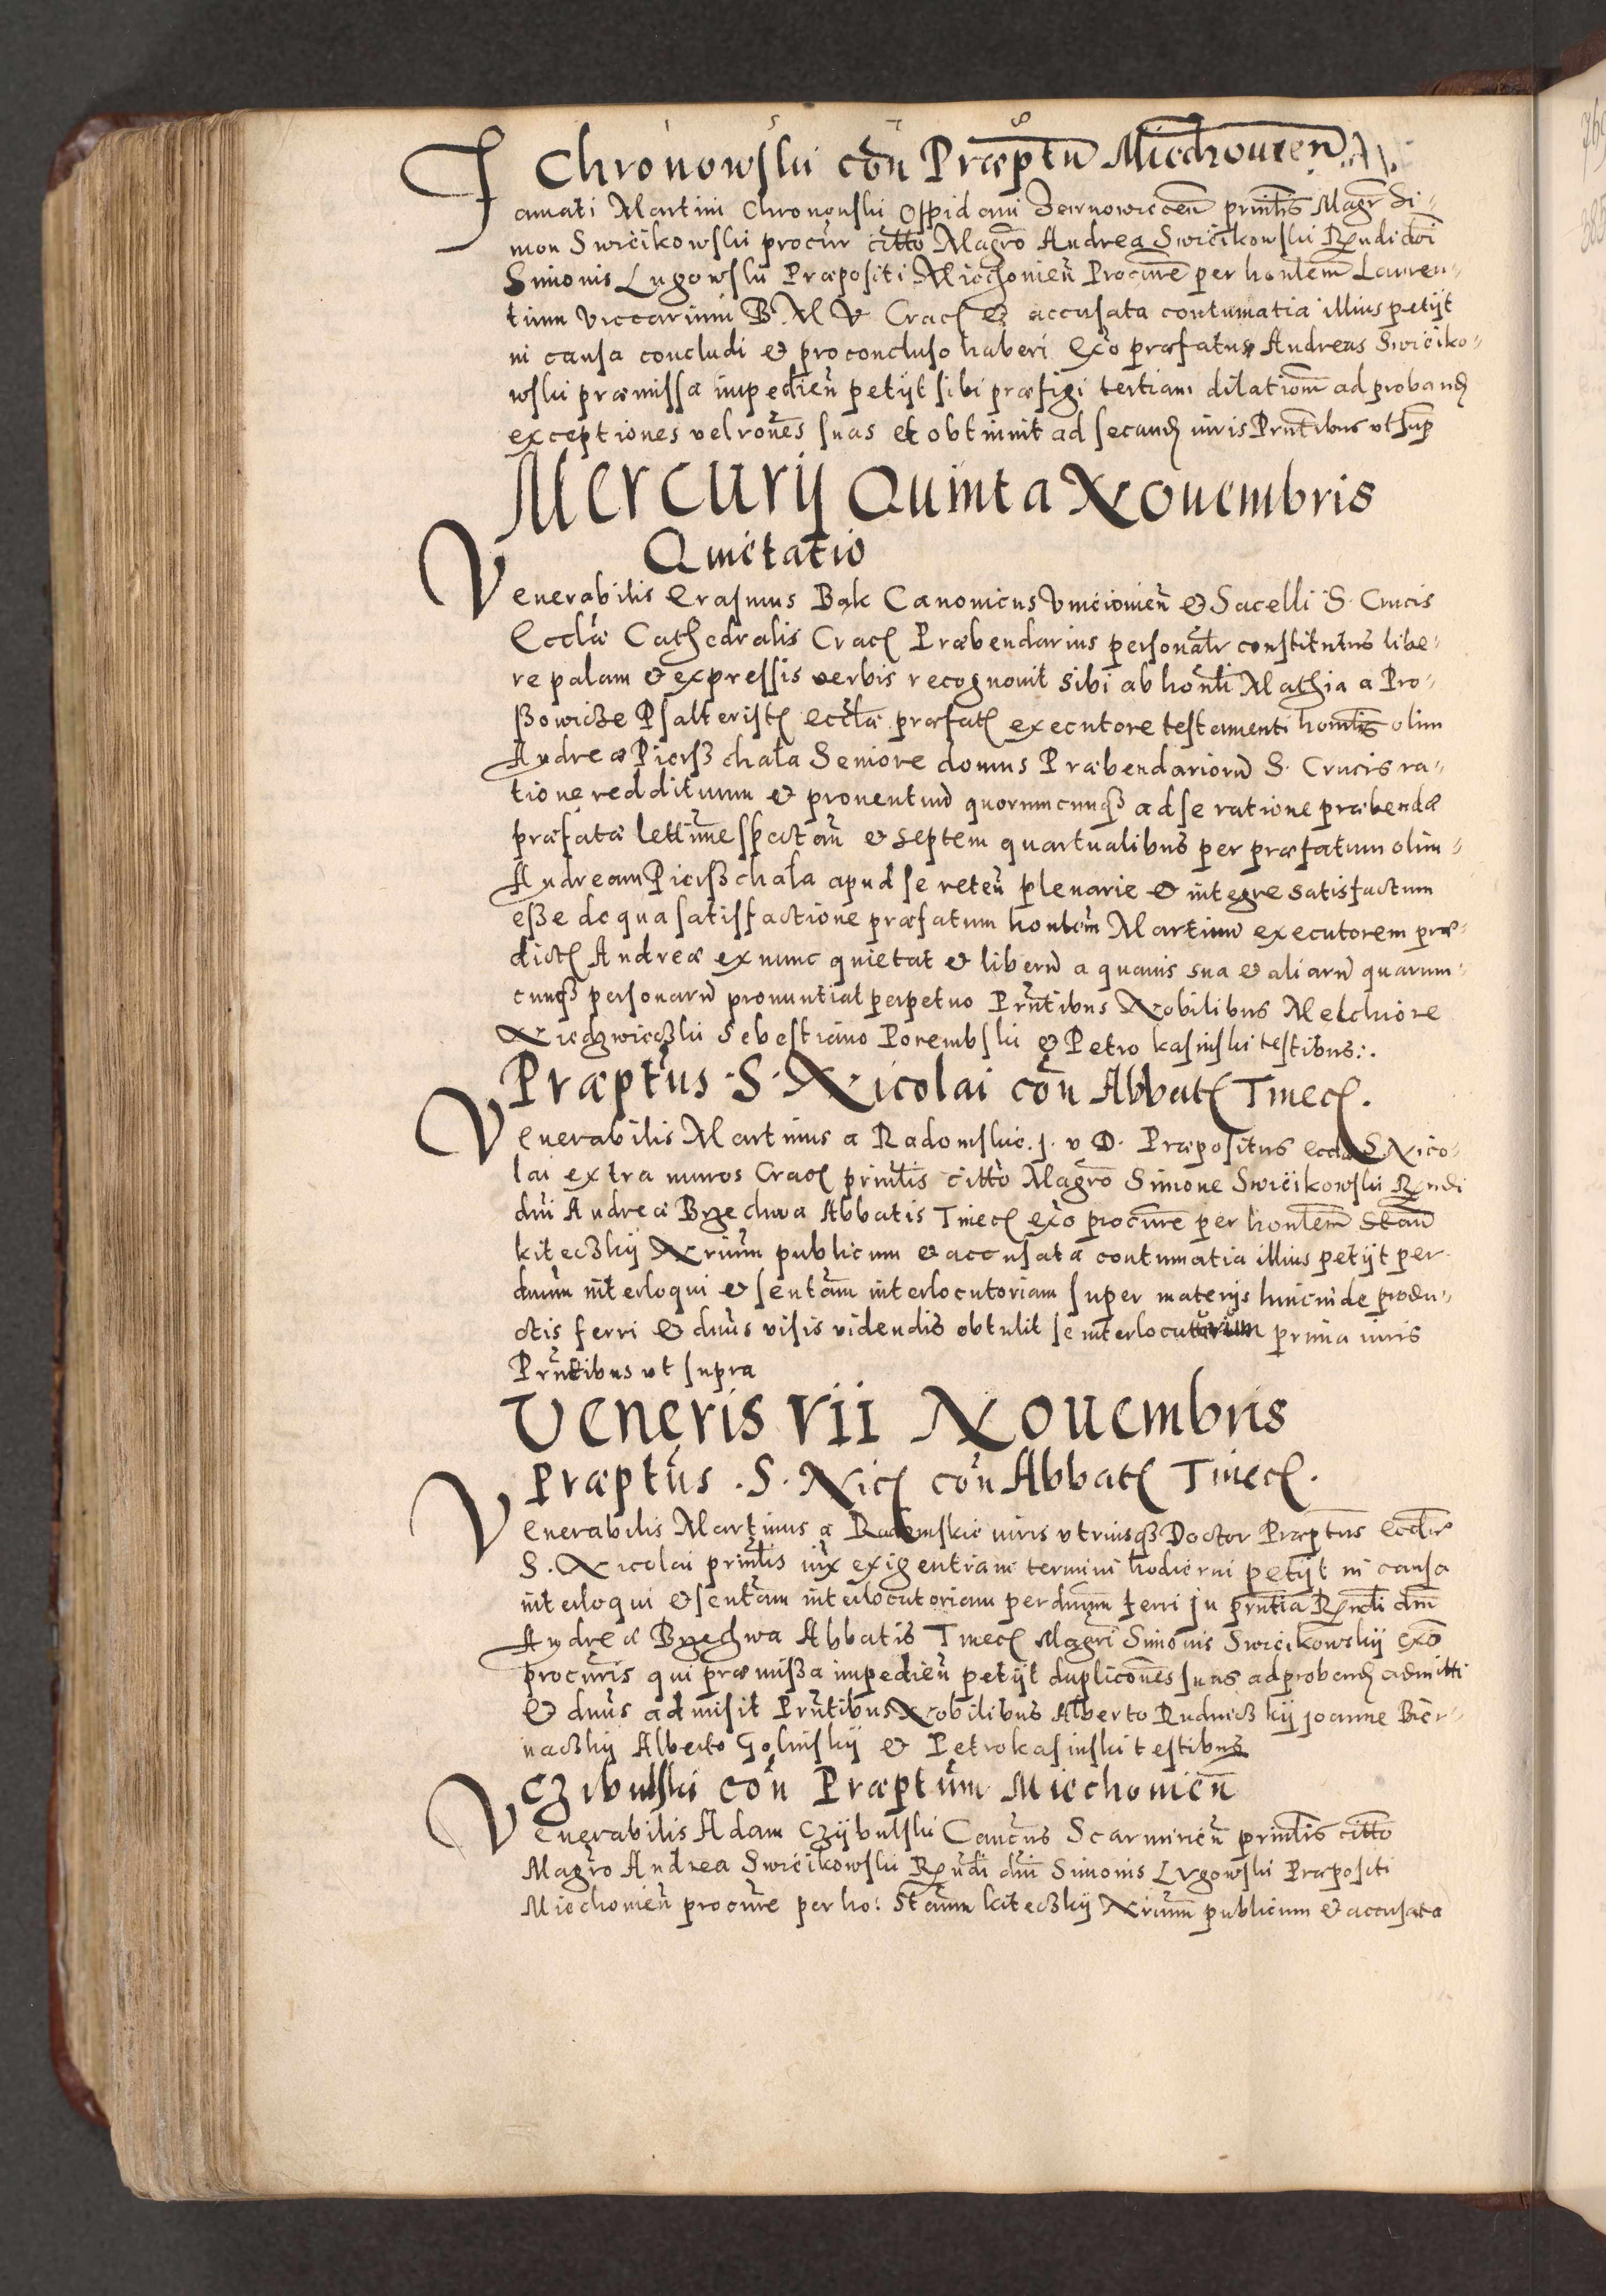 1 5 7 8
Chronowskii con Præptu Miechouien
Famati Martini Chronouskii Oppidani Zarnowiecen prinlis Magr Si-
mon Swiećikowskii procur citto Magro Andrea Swiećikowskii Rendi dni
Simonis Lugowskii Præpositi Miechouien Procure per honlem Lauren-
tium Viccarium B M V Crac & accusata contumatia illius petijt
in causa concludi et pro concluso haberi Exo præfatus Andreas Swieciko-
wskii præmissa impedien petijt sibi præfigi tertiam dilationem ad proband
exceptiones vel rones suas et obtinuit ad secund iuris Prntibus vt sup
Mercurij Quinta Nouembris
Quietatio
Venerabilis Erasmus Bąk Canonicus Vnieiouien & Sacelli S. Crucis
Eccliæ Cathedralis Crac Præbendarius personalr constitutus libe-
re palam & expressis verbis recognouit sibi ab honli Mathia a Pro-
ßowicze Psalterist ecclæ præfat executore testamenti honlis olim
Andreæ Pierßchała Seniore domus Præbendarioru S. Crucis ra-
tione reddituum & prouentuu quorumcunqz ad se ratione præbendæ
præfatæ lettime spectan & septem quartualibus per præfatum olim
Andream Pierßchała apud se reten plenarie & integre satisfactum
eße de qua satisfactione præfatum honlem Martinu executorem præ-
dict Andreæ ex nunc quietat & liberu a quauis sua & aliaru quarum-
cunqz personaru pronuntiat perpetuo Prntibus Nobilibus Melchiore
Niedzwieczkii Sebestiano Porembskii & Petro Kasinskii testibus:.
Præptus S. Nicolai con Abbat Tinec.
Venerabilis Martinus a Radomskie. J. V D. Præpositus eccliæ S. Nico-
lai extra muros Crac prinlis citto Magro Simone Swiećikowskii Rendi
dni Andreæ Brzechwa Abbatis Tinec exo procure per honlem Stanu
kiteczkij Nrium publicum & accusata contumatia illius petijt per
dnum interloqui & sentam interlocutoriam super materijs hincinde produ-
ctis ferri & dnus visis videndis obtulit se interlocuturum prima iuris
Prntibus vt supra
Veneris vii Nouembris
Præptus S. Nic con Abbat Tinec.
Venerabilis Martinus a Radomskie iuris vtriusqz Doctor Præptus eccliæ
S. Nicolai prinlis iux exigentiam termini hodierni petijt in causa
interloqui & sentam interlocutoriam per dnum ferri in prntia Rendi dni
Andreæ Brzechwa Abbatis Tinec Magri Simonis Swiecikowskij exo
procuris qui præmißa impedien petijt duplicones suas ad proband admitti
& dnus admisit Prntibus Nobilibus Alberto Rudniczkij Joanne Bier-
naczkij Alberto Golinskij & Petro Kasinski testibus
Czibulski con Præptum Miechouien
Venerabilis Adam Czijbulskii Cancus Scarmirien prinlis citto
Magro Andrea Swiećikowskii Rendi dni Simonis Lvgowskii Præpositi
Miechouien procure per ho: Stanum kiteczkij Nrium publicum & accusata